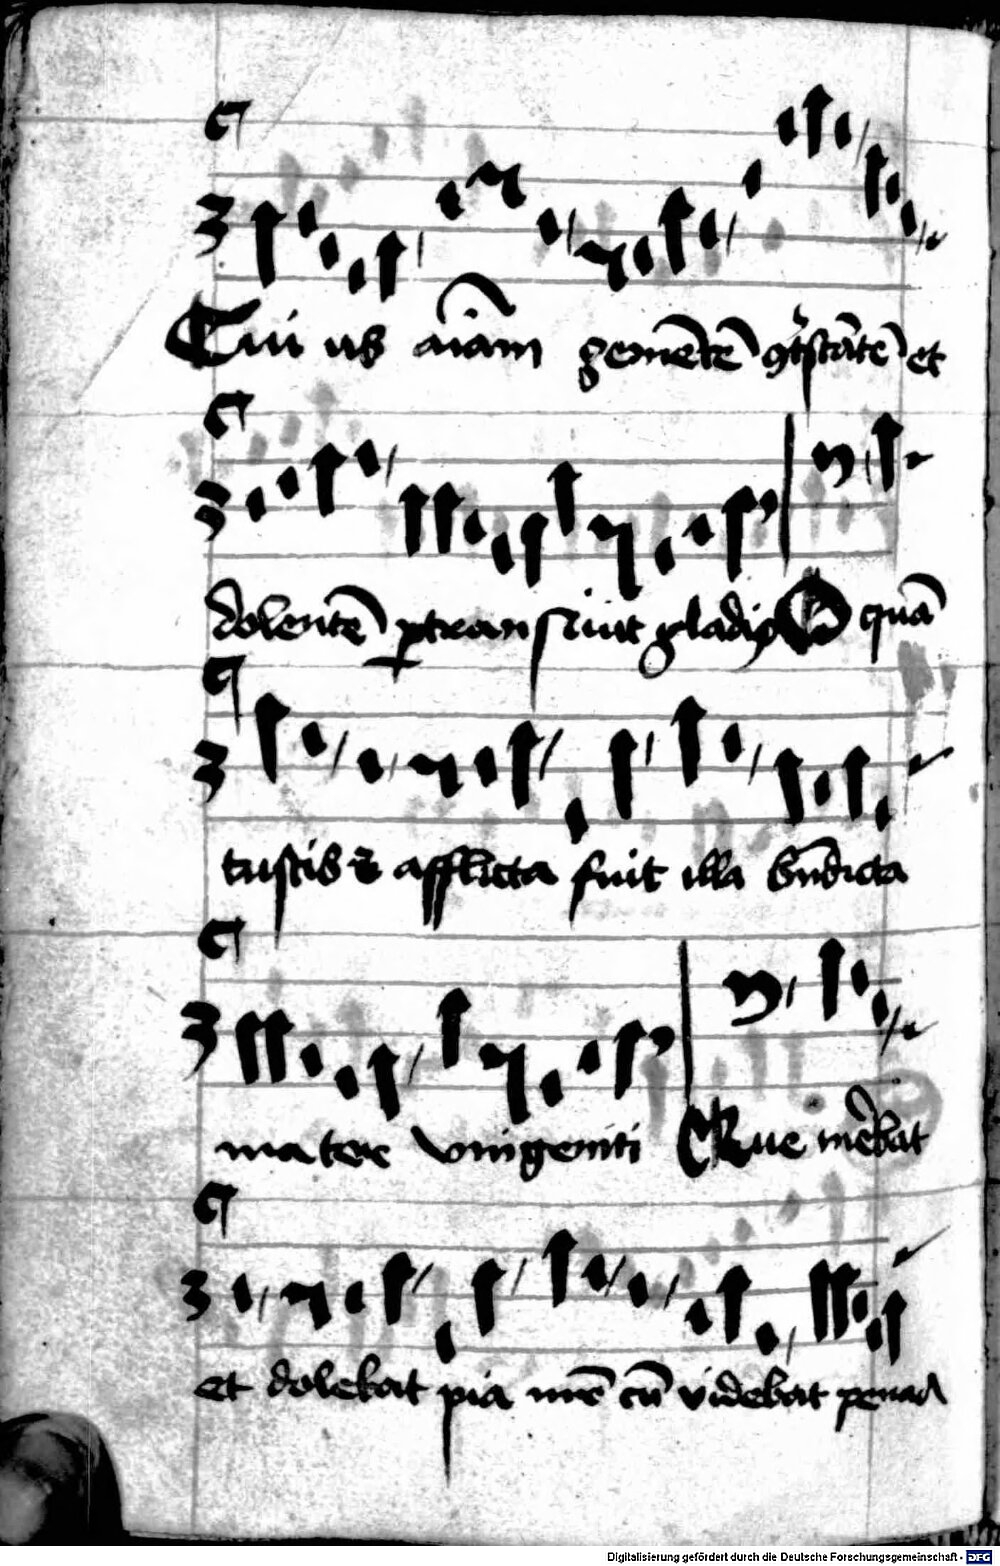 Cui us aiām gemētē ꝯt͛stātē et
dolentē ꝑtransiuit gladiꝰ O quā
tristis ⁊ afflicta fuit illa bn̄dicta
mater vnigeniti Que mērebat
et dolebat pia mr̄ cū videbat penas
Digitalisierung gefördert durch die Deutsche Forschungsgemeinschaft - DFG